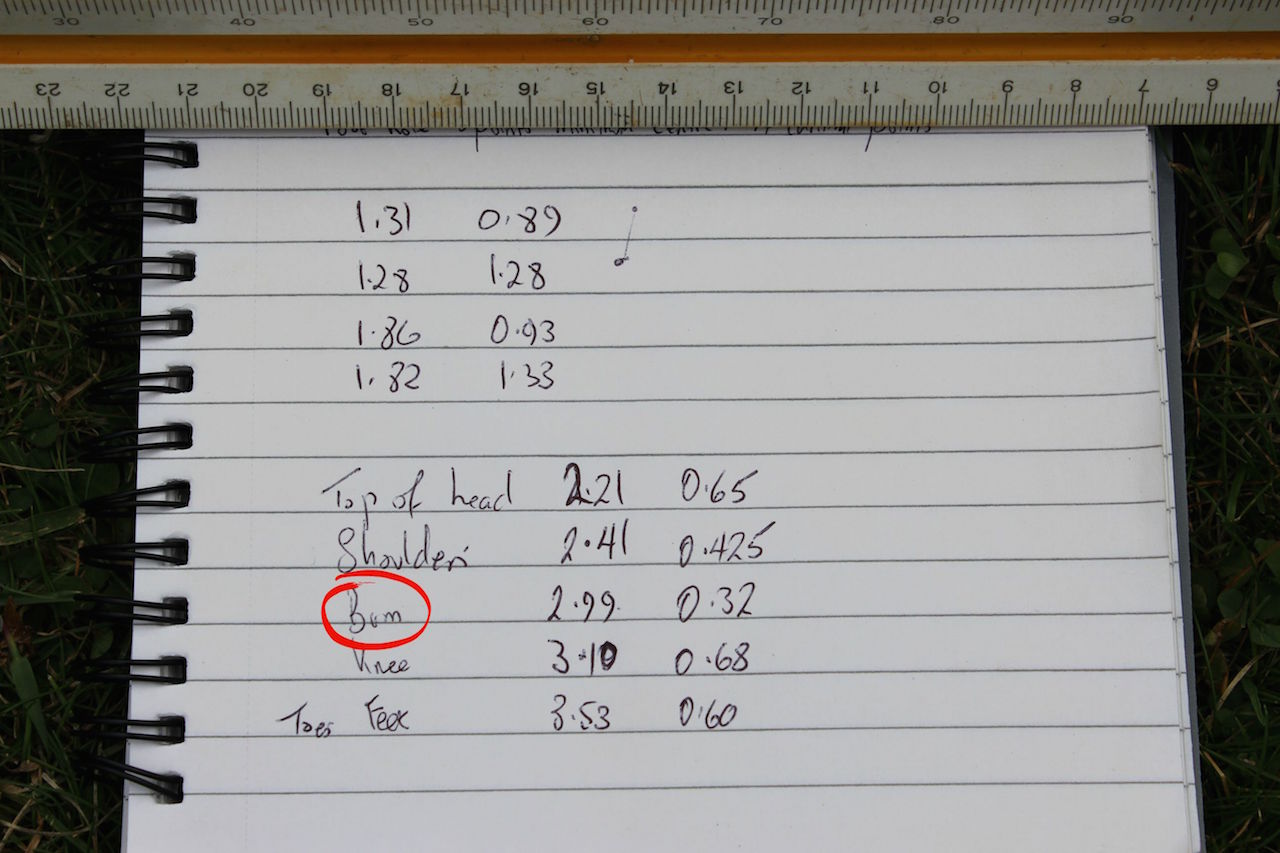 30 40 50 60 70 80 90
23 22 21 20 19 18 17 16 15 14 13 12 11 10 9 8 7 6
points points
1.31 0.89
1.28 1.28
1.86 0.93
1.82 1.33
Top of head 2.21 0.65
Shoulders 2.41 0.425
Bum 2.99 0.32
Knee 3.10 0.68
Toes Feet 3.53 0.60